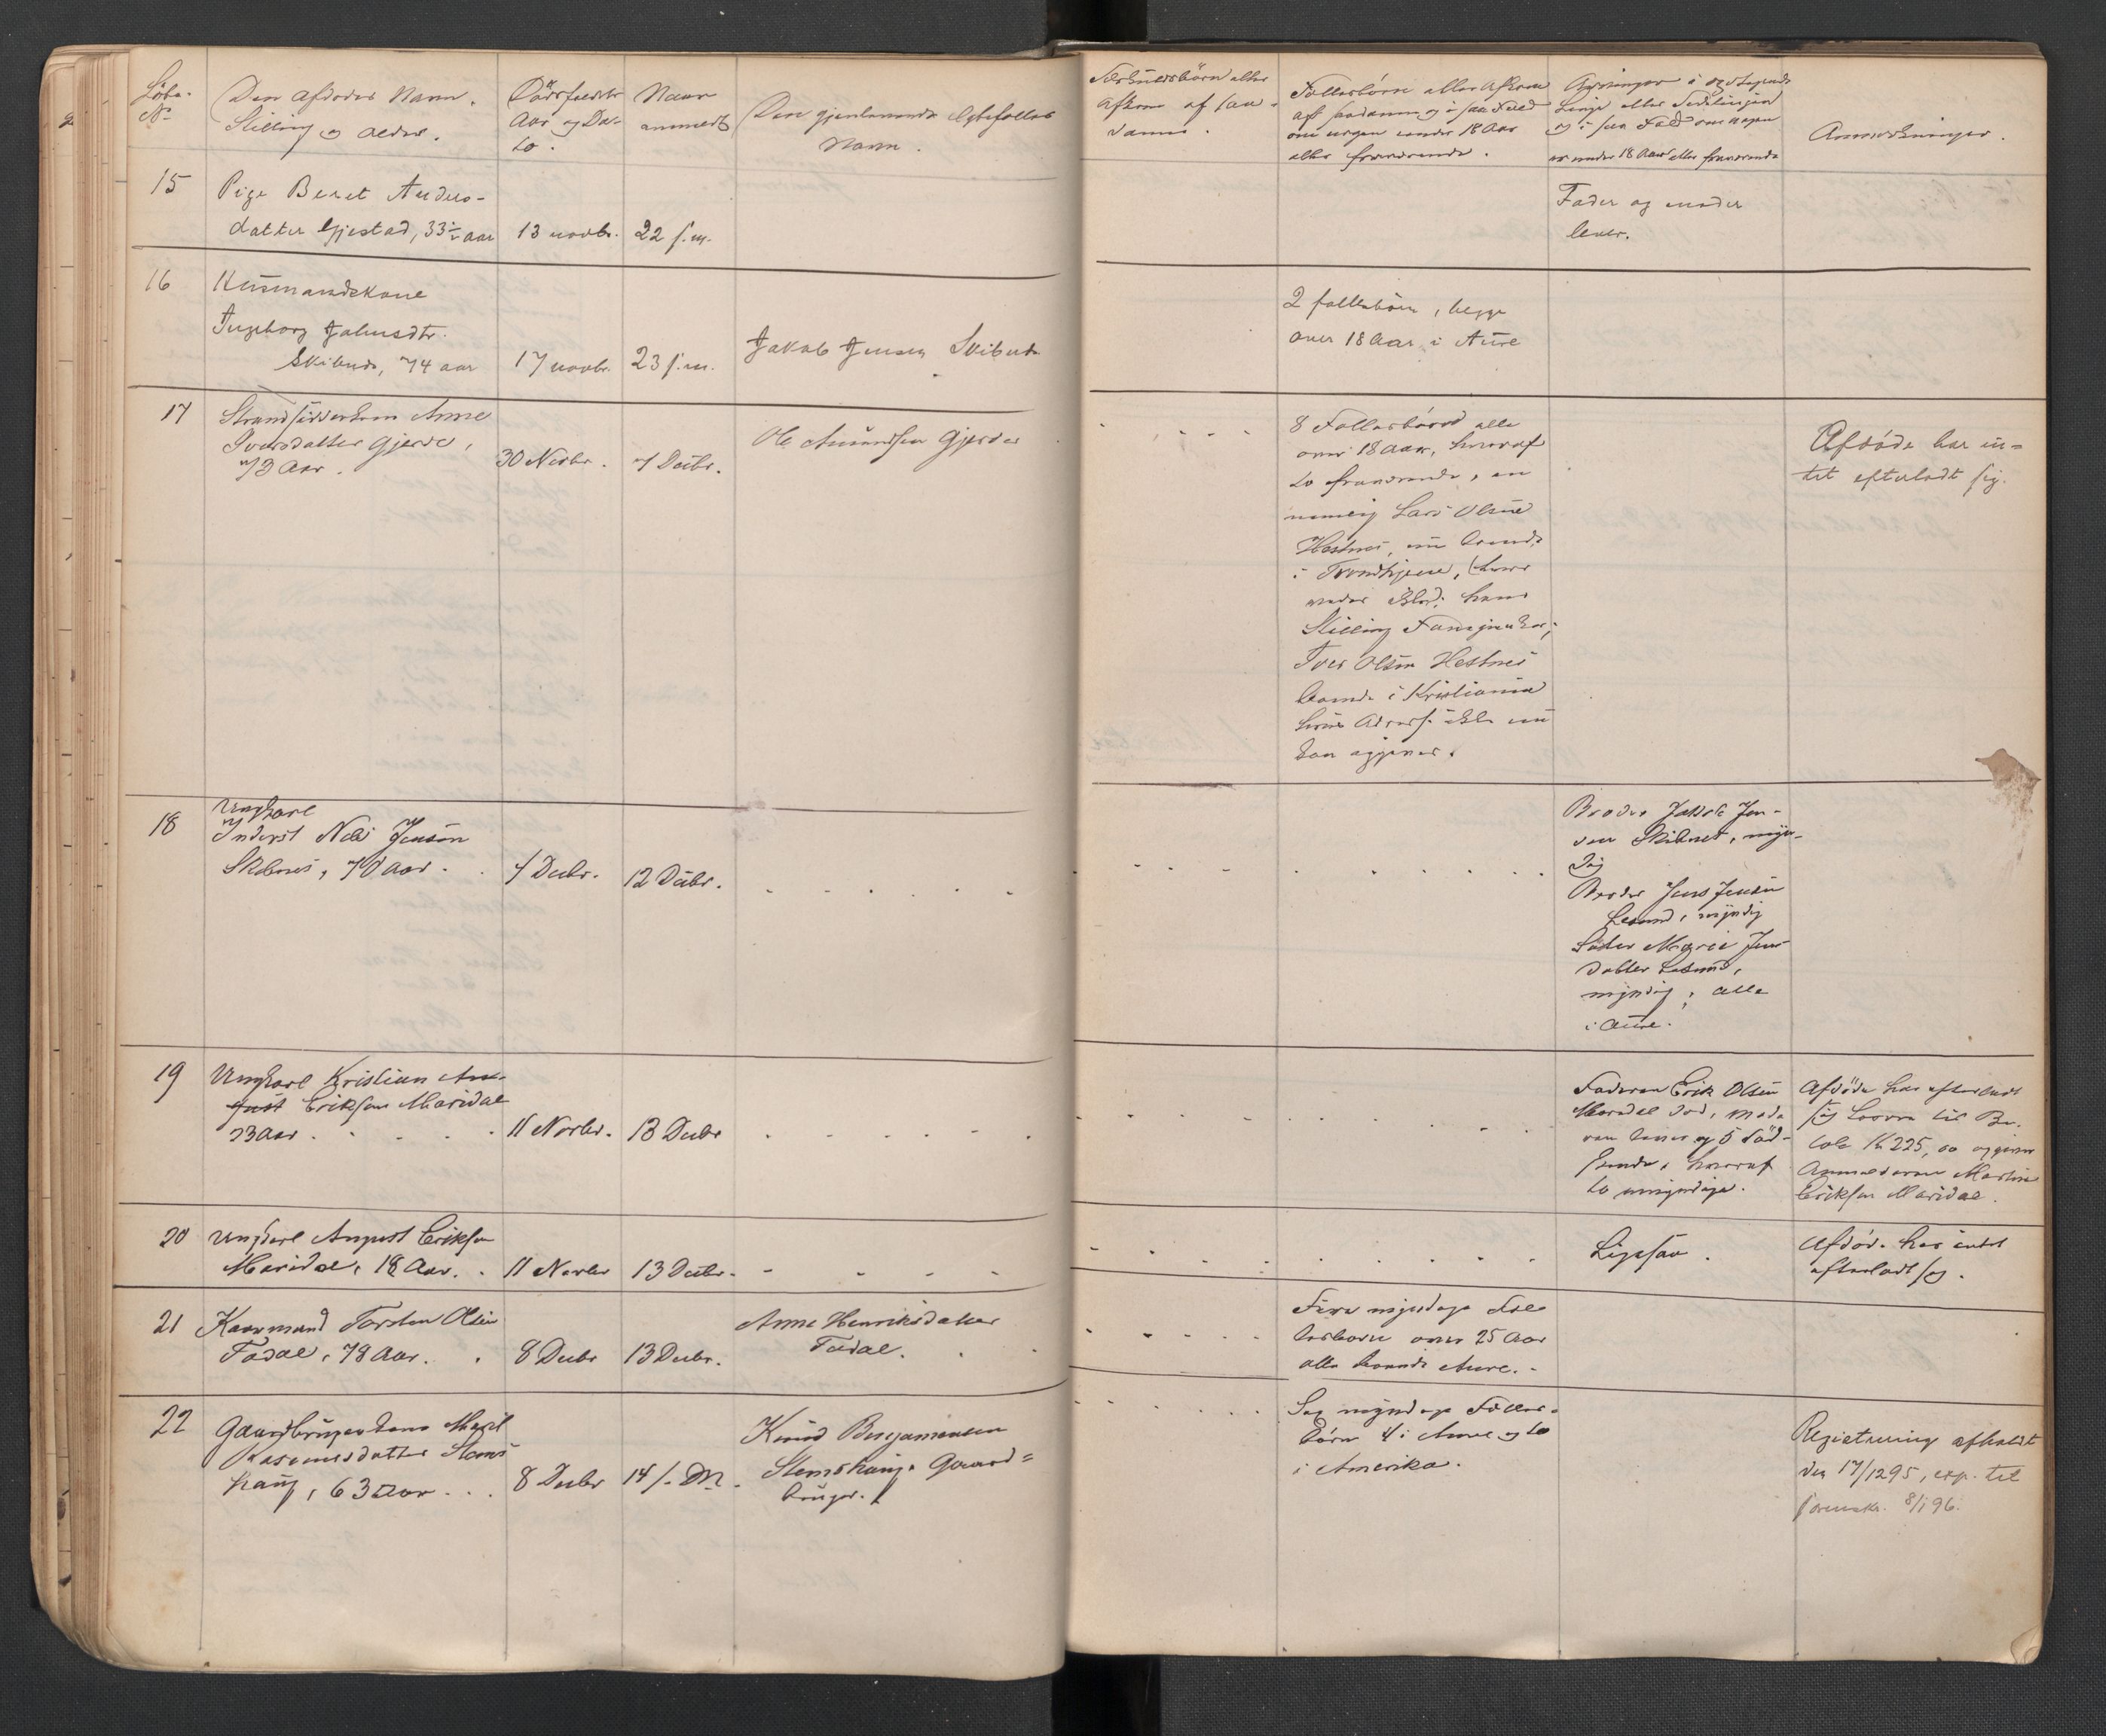 Löbe-
No
Den Afdödes Navn,
Stilling og Alder.
Dödsfaldets
Aar og Da-
to.
Naar
anmeldt
Den gjenlevende Egtefælles
Navn.
Særkuldsbörn eller
Afkom af saa-
danne.
Fællesbörn eller Afkom
af saadanne og i saa Fald
om nogen under 18 Aar
eller fraværende.
Arvinger i opstigende
Linje eller Sidelinjen
og i saa Fald om nogen
er under 18 Aar eller fraværende
Anmerkninger.
15
Pige Beret Anders-
datter Gjestad, 33 1/2 aar
13 novbr.
22 s.m.
Fader og moder
lever.
16
Husmandskone
Ingeborg Johnsdtr.
Skibnes, 74 aar
17 novbr.
23 s.m.
Jakob Jensen Skibnes
2 fellesbörn, begge
over 18 Aar i Aure
17
Strandsidderkone Anne
Iversdatter Gjerde,
73 Aar.
30 Novbr.
7 Decbr.
Ole Amundsen Gjerde
8 Fellesbörn alle
over 18 Aar, hvoraf
to fraværende, en
nemlig Lars Olsen
Hestnes, nu boende
i Trondhjem,
Stilling
Iver Olsen Hestnes
boende i Kristiania
hvis Adresse ikke nu
kan opgives.
Afdöde har in-
tet efterladt sig.
18
Ungkarl
Inderst Nils Jensen
Skibnes, 70 Aar.
7 Decbr.
12 Decbr.
Broder Jakob Jen-
sen Skibnes, myn-
dig
Broder Jens Jensen
Lesund, myndig
Söster Marie Jens-
datter Lesund,
myndig, alle
i Aure.
19
Ungkarl Kristian Au-
gust Eriksen Maridal
23 Aar.
11 Novbr.
13 Decbr
Faderen Erik Olsen
Maridal död, Mode-
ren lever og 5 Söd-
skende, hvoraf
to umyndige.
Afdöde har efterladt
sig Lösöre til Be-
löb Kr 225,00 opgiver
Anmelderen Martin
Eriksen Maridal.
20
Ungkarl August Eriksen
Maridal, 18 Aar.
11 Novbr
13 Decbr.
Ligesaa.
Afdöde har intet
efterladt sig.
21
Kaarmand Torsten Olsen
Todal, 78 Aar.
8 Decbr
13 Decbr.
Anne Henriksdatter
Todal.
Fire myndige Fæl-
lesbörn over 25 Aar
alle boende Aure.
22
Gaardbrugerkone Marit
Rasmusdatter Stems-
haug, 63 Aar
8 Decbr
14 s. M.
Knud Benjaminsen
Stemshaug, Gaard-
bruger.
Sex myndige Fælles-
börn 4 i Aure og to
i Amerika.
Registrering afholdt
den 17/12 95, exp. til
sorenskr. 8/1 96.